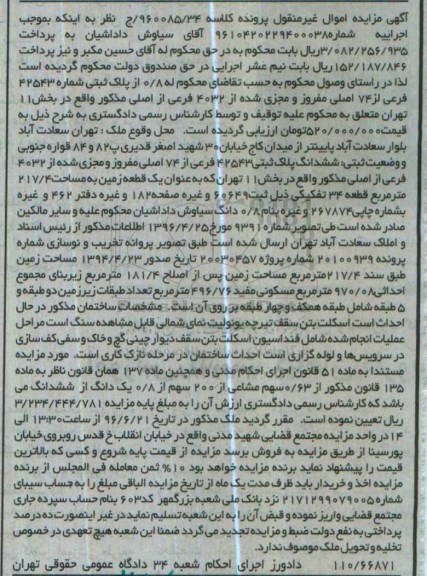 آگهی مزایده اموال غیرمنقول پرونده کلاسه ۹۶۰۰۸۵/۳۴/ج نظر به اینکه بموجب
اجراییه شماره ۹۶۱۰۴۲۰۲۲۹۴۰۰۰۳۸ آقای سیاوش داداشیان به پرداخت
۳/۰۸۲/۲۵۶/۹۳۵ ریال بابت محکوم به در حق محکوم له آقای حسین مکبر و نیز پرداخت
۱۵۲/۱۸۷/۸۴۶ ریال بابت نیم عشر اجرایی در حق صندوق دولت محکوم گردیده است
لذا در راستای وصول محکوم به حسب تقاضای محکوم له ۰/۸ از پلاک ثبتی شماره ۴۲۵۴۳
فرعی از ۷۴ اصلی مفروز و مجزی شده از ۴۰۳۲ فرعی از اصلی مذکور واقع در بخش ۱۱
تهران متعلق به محکوم علیه توقیف و توسط کارشناس رسمی دادگستری به شرح ذیل به
قیمت ۵۲۰/۰۰۰/۰۰۰ تومان ارزیابی گردیده است. محل وقوع ملک: تهران سعادت آباد
بلوار سعادت آباد پایینتر از میدان کاج خیابان ۳۰ شهید اصغر قدیری پ ۸۲ و ۸۴ قواره جنوبی
و وضعیت ثبتی: ششدانگ پلاک ثبتی ۴۲۵۴۳ فرعی از ۷۴ اصلی مفروز و مجزی شده از ۴۰۳۲
فرعی از اصلی مذکور واقع در بخش ۱۱ تهران که به عنوان یک قطعه زمین به مساحت ۲۱۷/۴
مترمربع قطعه ۳۴ تفکیکی ذیل ثبت ۶۰۶۴۹ و غیره صفحه ۱۸۲ و غیره دفتر ۴۶۲ و غیره
بشماره چاپی ۲۶۷۸۷۴ و غیره بنام ۰/۸ دانگ سیاوش داداشیان محکوم علیه و سایر مالکین
صادر شده است طی تصویر شماره ۹۳۹۱۰ مورخ ۱۳۹۶/۴/۲۵ اطلاعات مذکور از رئیس اسناد
و املاک سعادت آباد تهران ارسال شده است طبق تصویر پروانه تخریب و نوسازی شماره
پرونده ۲۰۱۰۰۹۳۹ شماره پروژه ۲۰۰۳۰۴۵۷ تاریخ صدور ۱۳۹۴/۴/۲۳ مساحت زمین
طبق سند ۲۱۷/۴ مترمربع مساحت زمین پس از اصلاح ۱۸۱/۴ مترمربع زیربنای مجموع
احداثی ۹۷۰/۰۸ مترمربع مسکونی مفید ۴۹۶/۷۶ مترمربع تعداد طبقات زیرزمین دو طبقه و
۵ طبقه شامل طبقه همکف و چهار طبقه بر روی آن است. مشخصات ساختمان مذکور در حال
احداث است اسکلت بتن سقف تیرچه یونولیت نمای شمالی قابل مشاهده سنگ است مراحل
عملیات انجام شده شامل فنداسیون اسکلت بتن سقف دیوار چینی گچ و خاک و سفی کف سازی
در سرویس‌ها و لوله گزاری است احداث ساختمان در مرحله نازک کاری است. مورد مزایده
مستندا به ماده ۵۱ قانون اجرای احکام مدنی و همچنین ماده ۱۳۷ همان قانون ناظر به ماده
۱۳۵ قانون مذکور از ۰/۶۳ سهم مشاعی از ۲۰۰ سهم از ۰/۸ یک دانگ از ششدانگ می
باشد که کارشناس رسمی دادگستری ارزش آن را به مبلغ پایه مزایده ۳/۲۳۴/۴۴۴/۷۸۱
ریال تعیین نموده است. مقرر گردید ملک مذکور در تاریخ ۹۶/۶/۲۱ از ساعت ۱۳:۳۰ الی
۱۴ در واحد مزایده مجتمع قضایی شهید مدنی واقع در خیابان انقلاب خ قدس روبروی خیابان
پورسینا از طریق مزایده به فروش برسد مزایده از قیمت پایه شروع و کسی که بالاترین
قیمت را پیشنهاد نماید برنده مزایده خواهد بود ۱۰% ثمن معامله فی المجلس از برنده
مزایده اخذ و خریدار باید ظرف مدت یک ماه از تاریخ مزایده الباقی مبلغ را به حساب سیبای
شماره ۲۱۷۱۲۹۹۰۷۹۰۰۵ نزد بانک ملی شعبه بزرگمهر کد ۶۰۳ بنام حساب سپرده جاری
مجتمع قضایی واریز نموده و قبض آن را به این شعبه تسلیم نماید در غیر اینصورت ده درصد
پرداختی به نفع دولت ضبط و مزایده تجدید می گردد ضمنا این شعبه هیچ تعهدی در خصوص
تخلیه و تحویل ملک موصوف ندارد.
۱۱۰/۶۶۸۷۱ دادورز اجرای احکام شعبه ۳۴ دادگاه عمومی حقوقی تهران